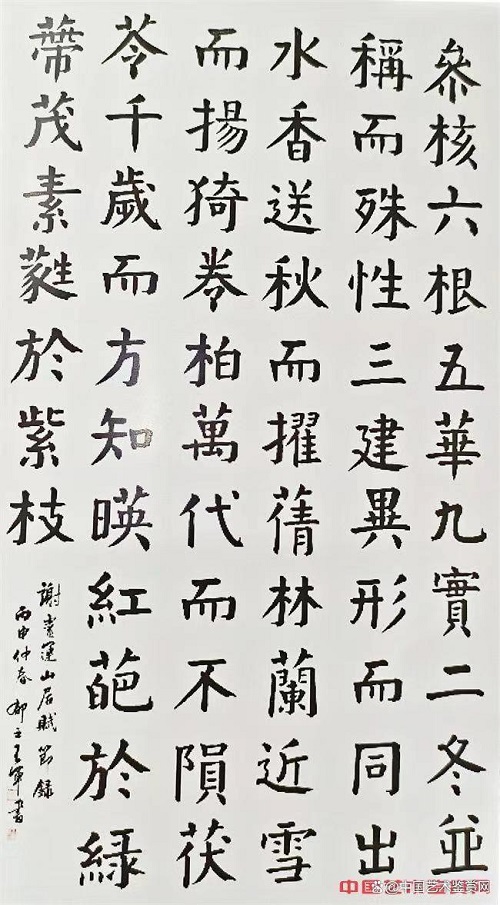 叅核六根五華九實二冬並
稱而殊性三建異形而同出
水香送秋而擢蒨林蘭近雪
而揚猗卷柏萬代而不隕茯
苓千歲而方知暎紅葩於綠
蔕茂素蕤於紫枝
謝靈運山居賦節錄
丙申仲春 軍書
中国艺术鉴赏网